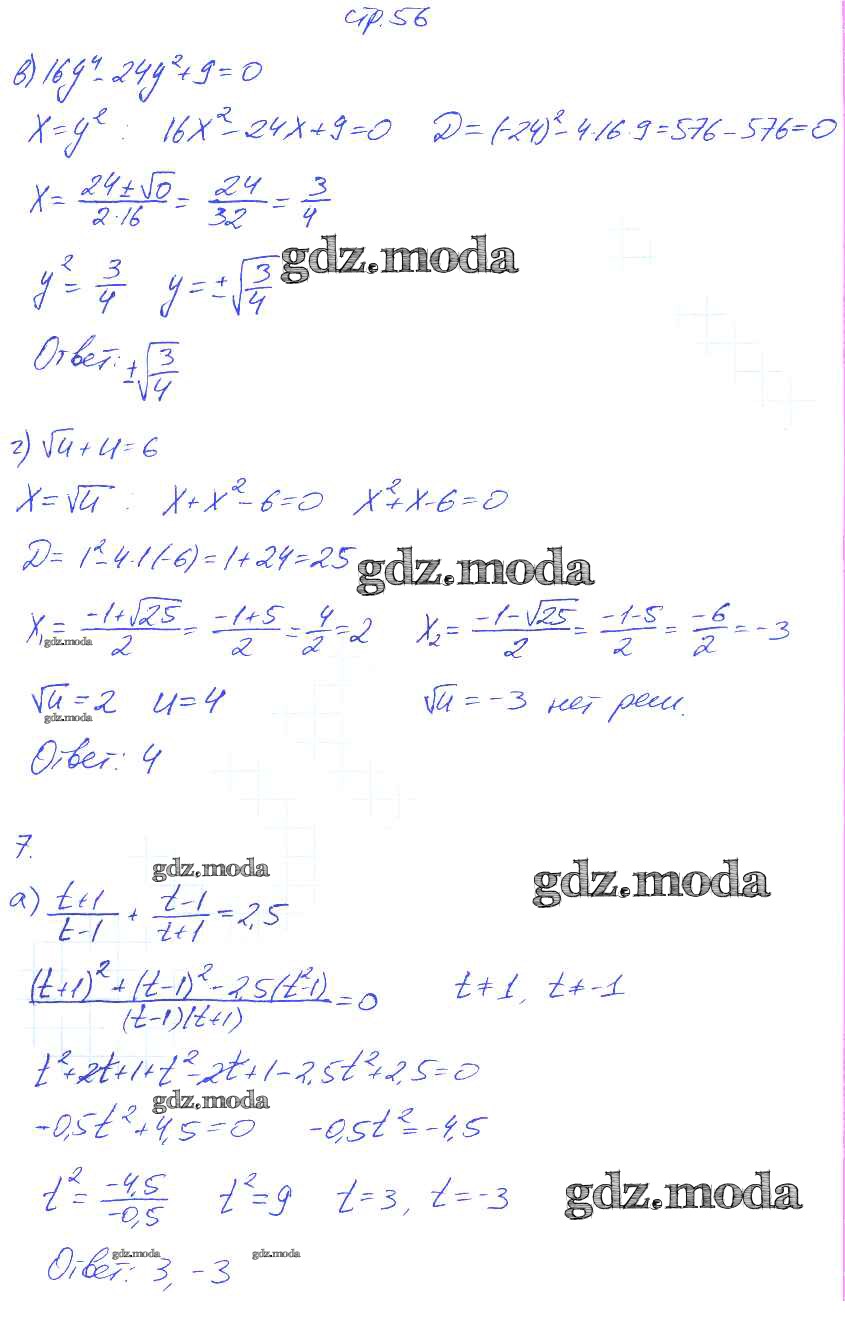 стр. 56
в) 16y⁴ - 24y² + 9 = 0
x = y² : 16x² - 24x + 9 = 0 D = (-24)² - 4·16·9 = 576 - 576 = 0
x = (24 ± √0)/(2·16) = 24/32 = 3/4
gdz.moda
y² = 3/4 y = ±√(3/4)
Ответ: ±√(3/4)
г) √u + u = 6
x = √u : x + x² - 6 = 0 x² + x - 6 = 0
D = 1² - 4·1(-6) = 1 + 24 = 25
gdz.moda
x₁ = (-1 + √25)/2 = (-1 + 5)/2 = 4/2 = 2 x₂ = (-1 - √25)/2 = (-1 - 5)/2 = -6/2 = -3
gdz.moda
√u = 2 u = 4 √u = -3 нет реш.
gdz.moda
Ответ: 4
7.
gdz.moda gdz.moda
а) (t+1)/(t-1) + (t-1)/(t+1) = 2,5
((t+1)² + (t-1)² - 2,5(t²-1))/((t-1)(t+1)) = 0 t ≠ 1, t ≠ -1
t² + 2t + 1 + t² - 2t + 1 - 2,5t² + 2,5 = 0
gdz.moda
-0,5t² + 4,5 = 0 -0,5t² = -4,5
t² = -4,5/-0,5 t² = 9 t = 3, t = -3 gdz.moda
gdz.moda gdz.moda
Ответ: 3, -3